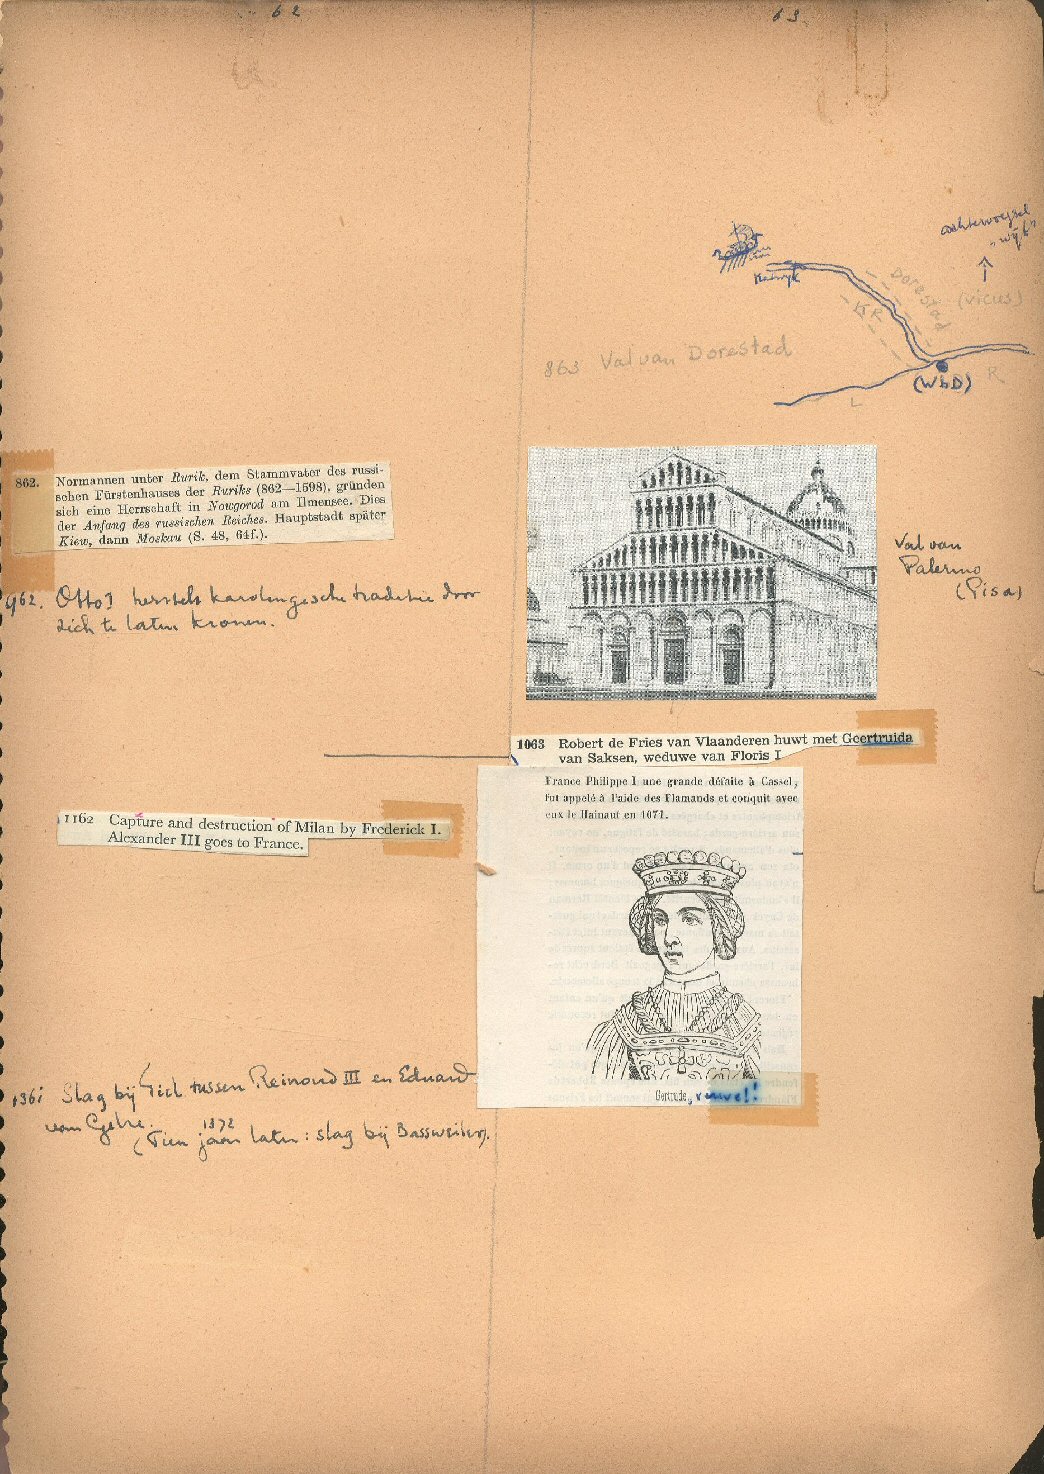 62
63
achtervoegsel
"wijk"
Katwijk
Dorestad
(vicus)
KR
863 Val van Dorestad
(WbD)
R
L
862. Normannen unter Rurik, dem Stammvater des russi-
schen Fürstenhauses der Ruriks (862—1598), gründen
sich eine Herrschaft in Nowgorod am Ilmensee. Dies
der Anfang des russischen Reiches. Hauptstadt später
Kiew, dann Moskau (S. 48, 64f.).
Val van
Palermo
(Pisa)
962. Otto I herstelt karolingische traditie door
zich te laten kronen.
1063 Robert de Fries van Vlaanderen huwt met Geertruida
van Saksen, weduwe van Floris I
France Philippe I une grande défaite à Cassel,
fut appelé à l'aide des Flamands et conquit avec
eux le Hainaut en 1071.
1162 Capture and destruction of Milan by Frederick I.
Alexander III goes to France.
Gertrude, veuve!!
1361 Slag bij Tiel tussen Reinoud III en Eduard
van Gelre.
1372
(Tien jaar later: slag bij Bassweiler).